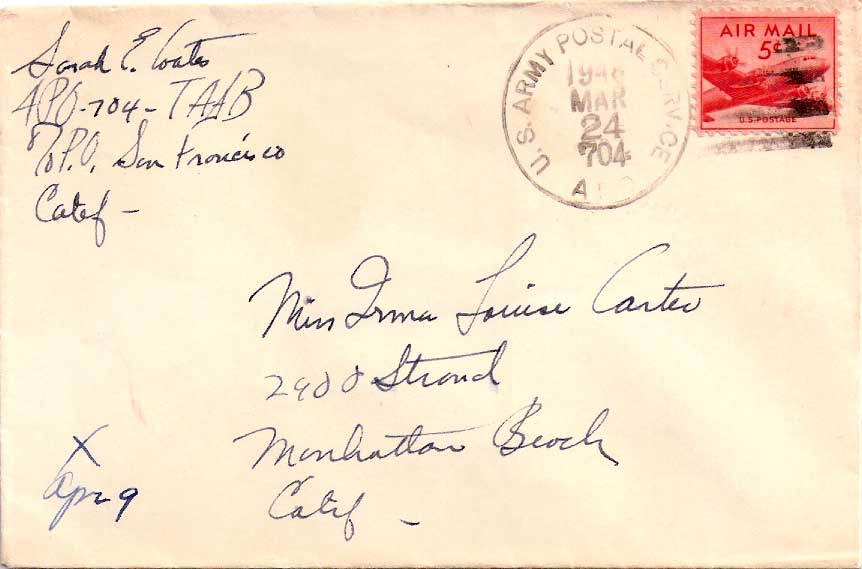 Sarah E. Coates
APO-704-TAAB
℅ P.O. San Francisco
Calif -
U.S. ARMY POSTAL SERVICE
1948
MAR
24
704
APO
AIR MAIL
5¢
U.S. POSTAGE
Miss Irma Louise Carter
2900 Strand
Manhattan Beach
Calif -
X
Apr 9